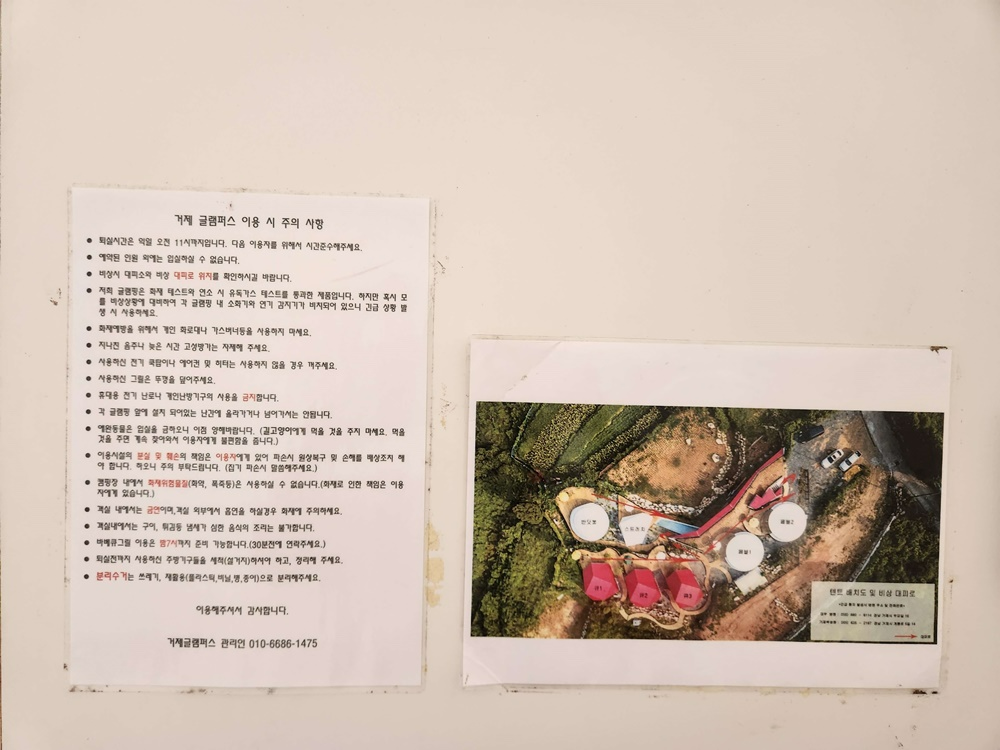 거제 글램퍼스 이용 시 주의 사항
● 퇴실시간은 익일 오전 11시까지입니다. 다음 이용자를 위해서 시간준수해주세요.
● 예약된 인원 외에는 입실하실 수 없습니다.
● 비상시 대피소와 비상 대피로 위치를 확인하시길 바랍니다.
● 저희 글램핑은 화재 테스트와 연소 시 유독가스 테스트를 통과한 제품입니다. 하지만 혹시 모
를 비상상황에 대비하여 각 글램핑 내 소화기와 연기 감지기가 비치되어 있으니 긴급 상황 발
생 시 사용하세요.
● 화재예방을 위해서 개인 화로대나 가스버너등을 사용하지 마세요.
● 지나친 음주나 늦은 시간 고성방가는 자제해 주세요.
● 사용하신 전기 쿡탑이나 에어컨 및 히터는 사용하지 않을 경우 꺼주세요.
● 사용하신 그릴은 뚜껑을 덮어주세요.
● 휴대용 전기 난로나 개인난방기구의 사용을 금지합니다.
● 각 글램핑 앞에 설치 되어있는 난간에 올라가거나 넘어가서는 안됩니다.
● 애완동물은 입실을 금하오니 이점 양해바랍니다. (길고양이에게 먹을 것을 주지 마세요. 먹을
것을 주면 계속 찾아와서 이용자에게 불편함을 줍니다.)
● 이용시설의 분실 및 훼손의 책임은 이용자에게 있어 파손시 원상복구 및 손해를 배상조치 해
야 합니다. 하오니 주의 부탁드립니다. (집기 파손시 말씀해주세요.)
● 캠핑장 내에서 화재위험물질(화약, 폭죽등)은 사용하실 수 없습니다.(화재로 인한 책임은 이용
자에게 있습니다.)
● 객실 내에서는 금연이며,객실 외부에서 흡연을 하실경우 화재에 주의하세요.
● 객실내에서는 구이, 튀김등 냄새가 심한 음식의 조리는 불가합니다.
● 바베큐그릴 이용은 밤7시까지 준비 가능합니다.(30분전에 연락주세요.)
● 퇴실전까지 사용하신 주방기구들을 세척(설거지)하셔야 하고, 정리해 주세요.
● 분리수거는 쓰레기, 재활용(플라스틱,비닐,병,종이)으로 분리해주세요.
이용해주셔서 감사합니다.
거제글램퍼스 관리인 010-6686-1475
펄2
펄1
텐트 배치도 및 비상 대피로